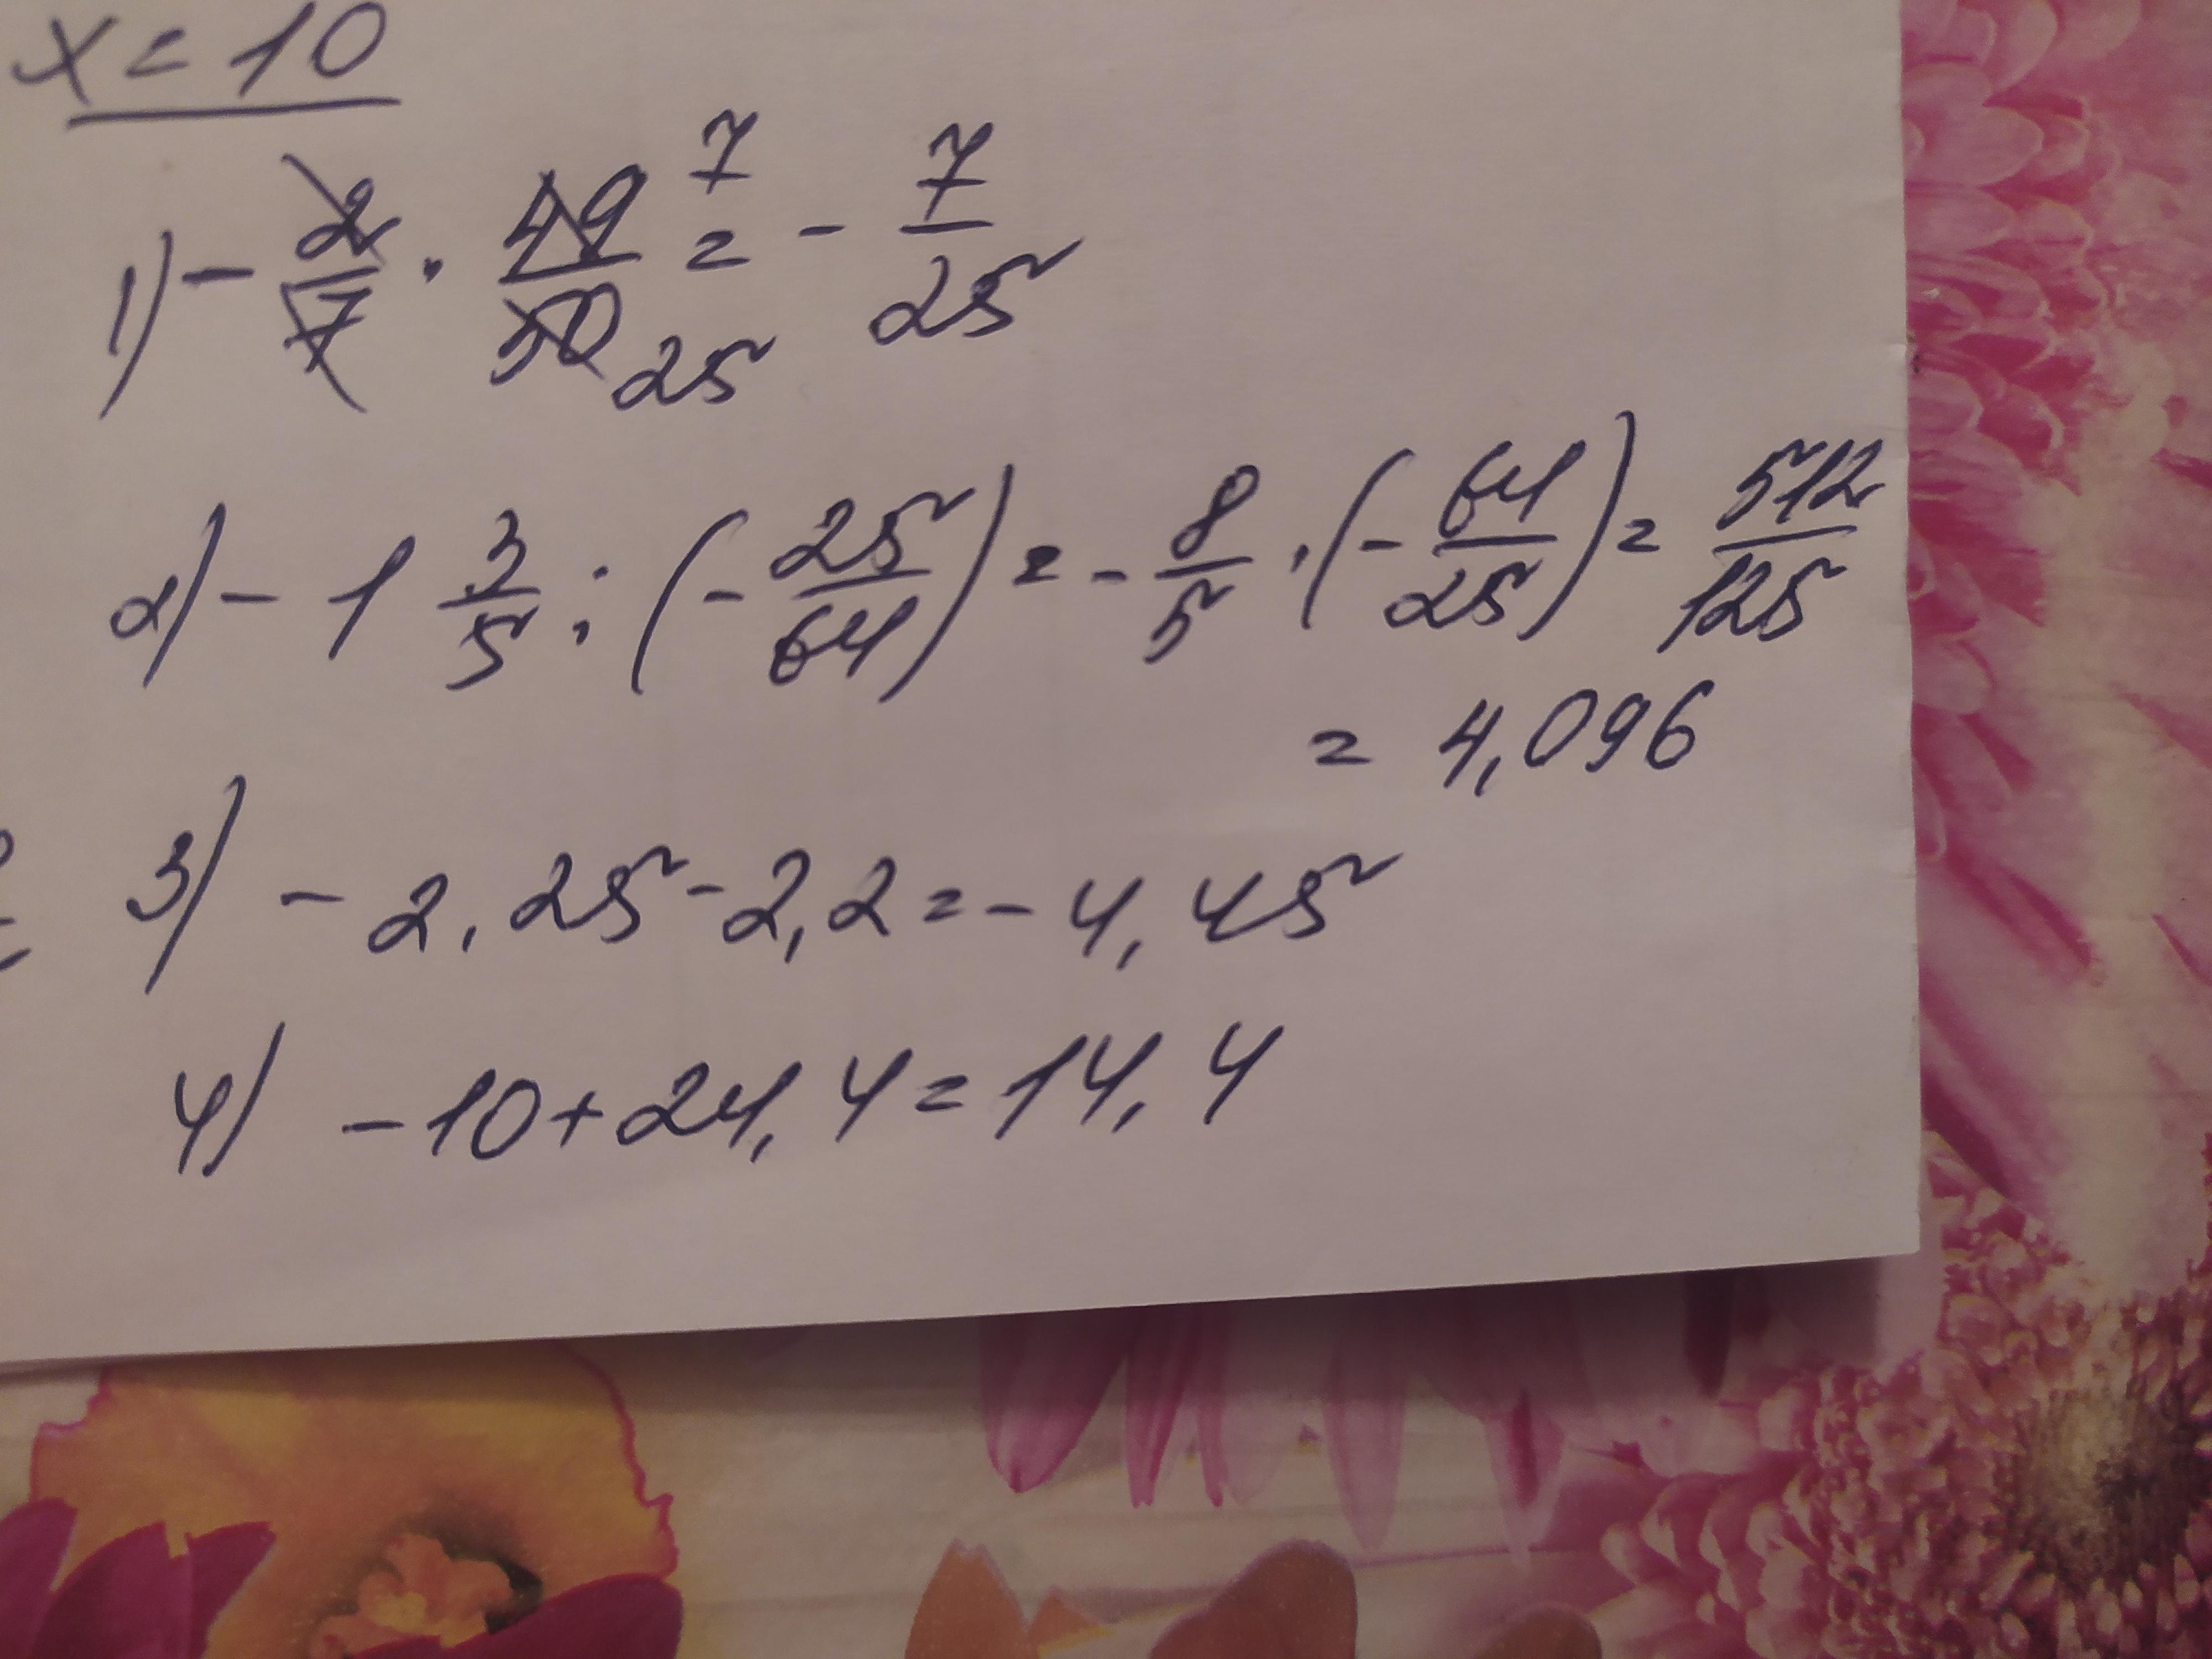 x = 10
1) - 2/7 · 49/50 7 25 = - 7/25
2) - 1 3/5 : (- 25/64) = - 8/5 · (- 64/25) = 512/125
= 4,096
3) - 2,25 - 2,2 = - 4,45
4) - 10 + 24,4 = 14,4